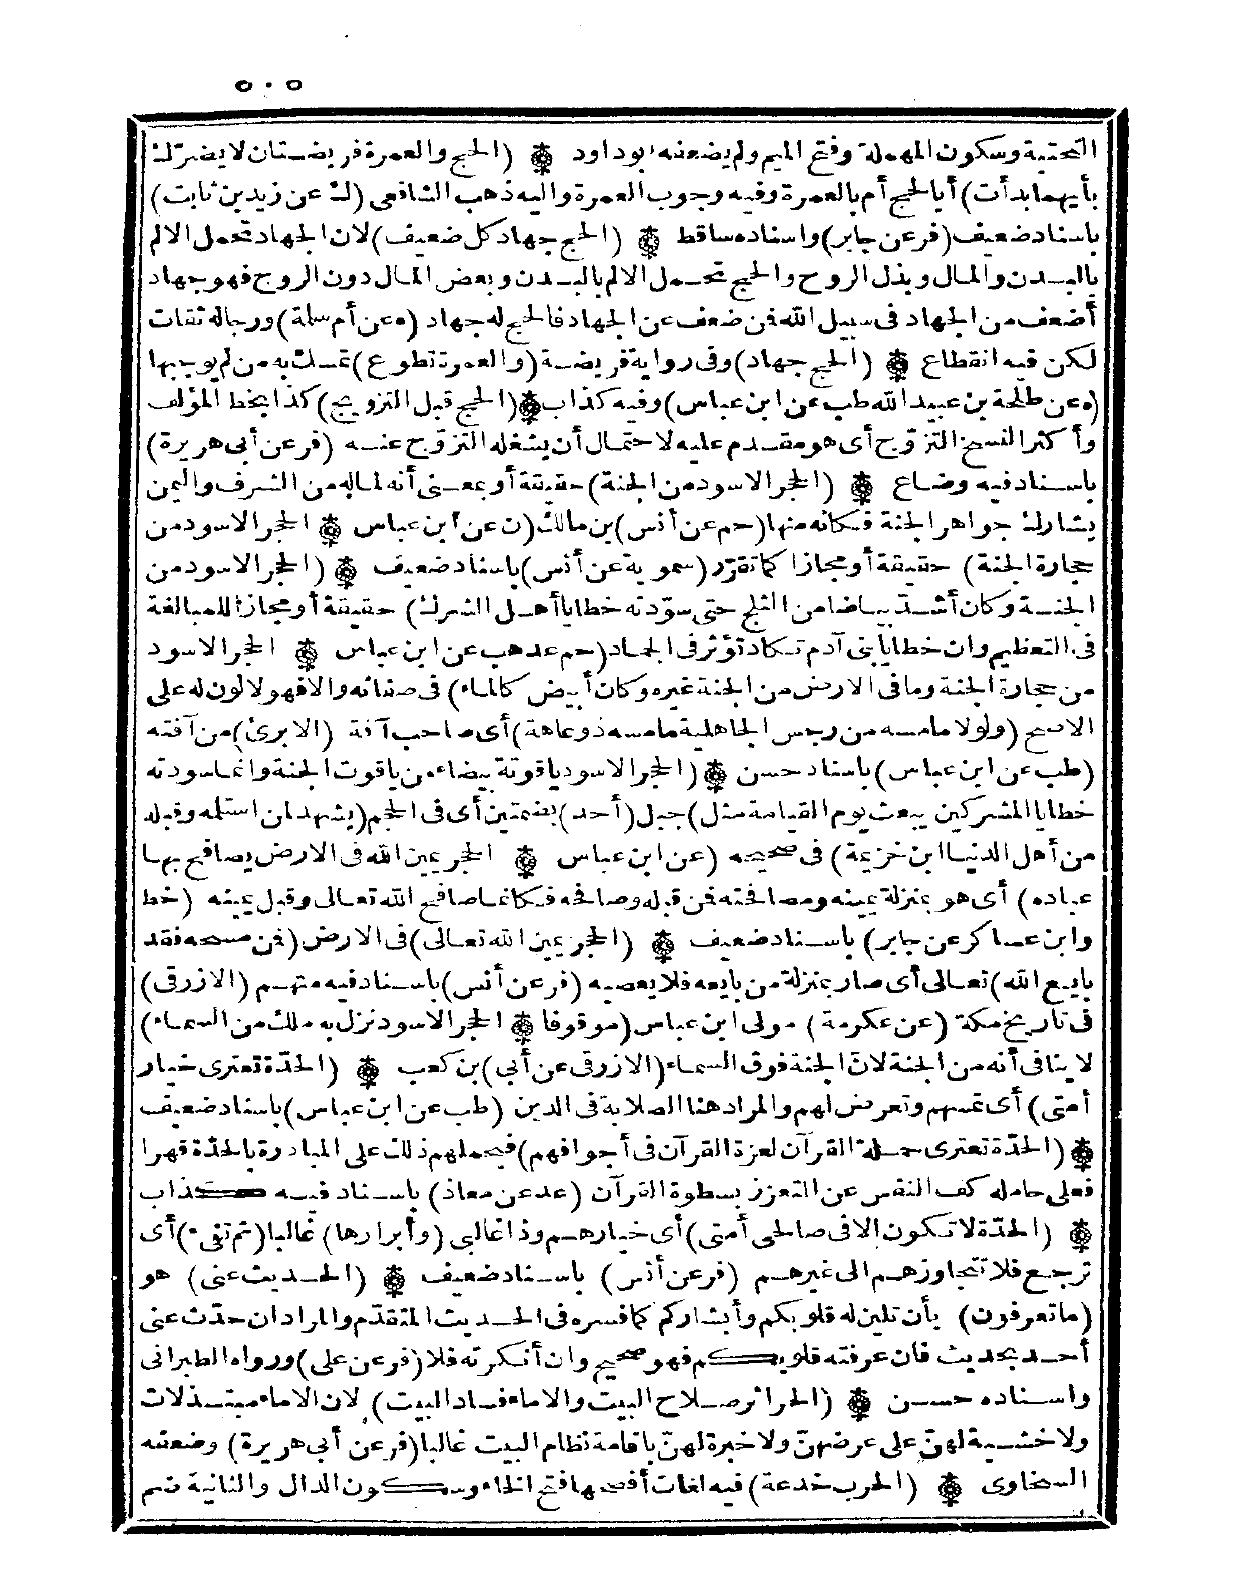 ٥٠٥
التحتية وسكون المهملة وفتح الميم ولم يضعفه أبو داود ۞ (الحج والعمرة فريضتان لا يضرّك
بأيهما بدأت) أبالحج أم بالعمرة وفيه وجوب العمرة واليه ذهب الشافعى (ك عن زيد بن ثابت)
باسناد ضعيف (فر عن جابر) واسناده ساقط ۞ (الحج جهاد كل ضعيف) لان الجهاد تحمل الالم
بالبدن والمال وبذل الروح والحج تحمل الالم بالبدن وبعض المال دون الروح فهو جهاد
أضعف من الجهاد فى سبيل الله فمن ضعف عن الجهاد فالحج له جهاد (ه عن أم سلة) ورجاله ثقات
لكن فيه انقطاع ۞ (الحج جهاد) وفى رواية فريضة (والعمرة تطوع) تمسك به من لم يوجبها
(ه عن طلحة بن عبيد الله طب عن ابن عباس) وفيه كذاب ۞ (الحج قبل التزويج) كذا بخط المؤلف
وأكثر النسخ التزوّج أى هو مقدم عليه لاحتمال أن يشغله التزوّج عنه (فر عن أبى هريرة)
باسناد فيه وضاع ۞ (الحجر الاسود من الجنة) حقيقة أو بمعنى أنه لماله من الشرف واليمن
يشارك جواهر الجنة فكانه منها (حم عن أنس) بن مالك (ن عن ابن عباس ۞ الحجر الاسود من
حجارة الجنة) حقيقة أو مجازا كما تقرّر (سموية عن أنس) باسناد ضعيف ۞ (الحجر الاسود من
الجنة وكان أشد بياضا من الثلج حتى سوّدته خطايا أهل الشرك) حقيقة أو مجازا للمبالغة
فى التعظيم وان خطايا بنى آدم تكاد تؤثر فى الجماد (حم عد هب عن ابن عباس ۞ الحجر الاسود
من حجارة الجنة وما فى الارض من الجنة غيره وكان أبيض كالماء) فى صفائه والا فهو لا لون له على
الاصح (ولولا ما مسه من رجس الجاهلية ما مسه ذو عاهة) أى صاحب آفة (الا برئ) من آفته
(طب عن ابن عباس) باسناد حسن ۞ (الحجر الاسود ياقوتة بيضاء من ياقوت الجنة وانما سودته
خطايا المشركين يبعث يوم القيامة مثل) جبل (أحد) بضمتين أى فى الحجم (يشهد لمن استلمه وقبله
من أهل الدنيا ابن خزيمة) فى صحيحه (عن ابن عباس ۞ الحجر يمين الله فى الارض يصافح بها
عباده) أى هو بمنزلة يمينه ومصافحته فمن قبله وصافحه فكانما صافح الله تعالى وقبل يمينه (خط
وابن عساكر عن جابر) باسناد ضعيف ۞ (الحجر يمين الله تعالى) فى الارض (فمن مسحه فقد
بايع الله) تعالى أى صار بمنزلة من بايعه فلا يعصيه (فر عن أنس) باسناد فيه متهم (الازرقى)
فى تاريخ مكة (عن عكرمة) مولى ابن عباس (موقوفا ۞ الحجر الاسود نزل به ملك من السماء)
لا ينافى أنه من الجنة لان الجنة فوق السماء (الازرقى عن أبي) بن كعب ۞ (الحدّة تعترى خيار
أمتى) أى تمسهم وتعرض لهم والمراد هنا الصلابة فى الدين (طب عن ابن عباس) باسناد ضعيف
۞ (الحدّة تعترى حملة القرآن لعزة القرآن فى أجوافهم) فيحملهم ذلك على المبادرة بالحدّة قهرا
فعلى حامله كف النفس عن التعزز بسطوة القرآن (عد عن معاذ) باسناد فيه كذاب
۞ (الحدّة لا تكون الا فى صالحى أمتى) أى خيارهم وذا غالبى (وأبرارها) غالبا (ثم تفىء) أى
ترجع فلا تتجاوزهم الى غيرهم (فر عن أنس) باسناد ضعيف ۞ (الحديث عنى) هو
(ما تعرفون) بأن تلين له قلوبكم وأبشاركم كما فسره فى الحديث المتقدّم والمراد ان حدّث عنى
أحد بحديث فان عرفته قلوبكم فهو صحيح وان أنكرته فلا (فر عن على) ورواه الطبرانى
واسناده حسن ۞ (الحرائر صلاح البيت والاماء فساد البيت) لان الاماء مبتذلات
ولا خشية لهنّ على عرضهنّ ولا خبرة لهنّ باقامة نظام البيت غالبا (فر عن أبى هريرة) وضعفه
السخاوى ۞ (الحرب خدعة) فيه لغات أفصحها فتح الخاء وسكون الدال والثانية ضم